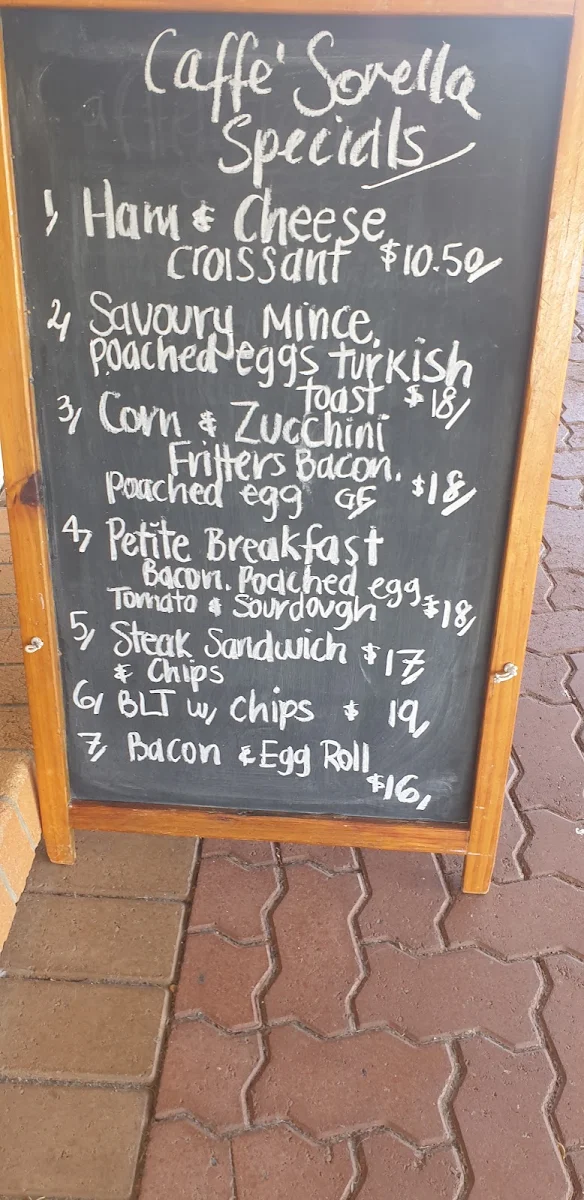 Caffe' Sorella
Specials
1, Ham & Cheese
croissant $10.50
2, Savoury Mince,
poached eggs turkish
toast $18,
3, Corn & Zucchini
Fritters Bacon.
poached egg GF $18,
4, Petite Breakfast
Bacon. Poached egg
Tomato & Sourdough $18,
5, Steak Sandwich $17
& Chips
6, BLT w, chips $ 19,
7, Bacon & Egg Roll
$16,